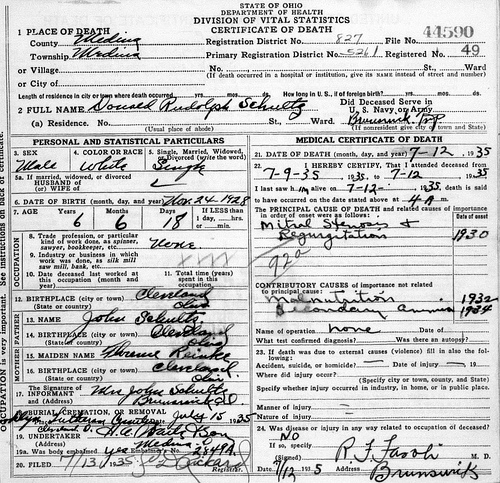 STATE OF OHIO
DEPARTMENT OF HEALTH
DIVISION OF VITAL STATISTICS
CERTIFICATE OF DEATH
44590
1 PLACE OF DEATH
County Medina Registration District No. 827 File No.
Township Medina Primary Registration District No. 5261 Registered No. 49
or Village No. St., Ward
(If death occurred in a hospital or institution, give its NAME instead of street and number)
or City of
Length of residence in city or town where death occurred yrs. mos. ds. How long in U. S., if of foreign birth? yrs. mos. ds.
2 FULL NAME Donald Rudolph Schultz Did Deceased Serve in U. S. Navy or Army
(a) Residence. No. St., Ward. Brunswick Twp
(Usual place of abode) (If nonresident give city or town and State)
PERSONAL AND STATISTICAL PARTICULARS
3. SEX 4. COLOR OR RACE 5. Single, Married, Widowed, or Divorced (write the word)
Male White Single
5a. If married, widowed, or divorced
HUSBAND of
(or) WIFE of
6. DATE OF BIRTH (month, day, and year) Nov. 24 1928
7. AGE Years Months Days If LESS than
1 day, hrs.
or min.
6 6 18
OCCUPATION
8. Trade, profession, or particular kind of work done, as spinner, sawyer, bookkeeper, etc. None
9. Industry or business in which work was done, as silk mill, saw mill, bank, etc.
10. Date deceased last worked at this occupation (month and year)
11. Total time (years) spent in this occupation
12. BIRTHPLACE (city or town) Cleveland
(State or country) Ohio
FATHER
13. NAME John Schultz
14. BIRTHPLACE (city or town) Cleveland
(State or country) Ohio
MOTHER
15. MAIDEN NAME Florence Reinke
16. BIRTHPLACE (city or town) Cleveland
(State or country) Ohio
17. The Signature of INFORMANT Mrs John Schultz
and (Address) Brunswick O
18. BURIAL, CREMATION, OR REMOVAL
Lutheran July 15 1935
19. UNDERTAKER
(Address) Medina, O
19a. Was body embalmed yes Embalmer's No. 2849A
20. FILED 7/13 1935 Registrar.
MEDICAL CERTIFICATE OF DEATH
21. DATE OF DEATH (month, day, and year) 7-12, 1935
22. I HEREBY CERTIFY, That I attended deceased from
7-9-35 1935, to 7-12 1935
I last saw him alive on 7-12- 1935 death is said
to have occurred on the date stated above at 4 A m.
The PRINCIPAL CAUSE OF DEATH and related causes of importance in order of onset were as follows: Date of onset
Mitral Stenosis &
Regurgitation 1930
92a
CONTRIBUTORY CAUSES of importance not related to principal cause:
Malnutrition 1932
Secondary Anemia 1934
Name of operation none Date of
What test confirmed diagnosis? Was there an autopsy?
23. If death was due to external causes (violence) fill in also the following:
Accident, suicide, or homicide? Date of injury , 19
Where did injury occur?
(Specify city or town, county, and State)
Specify whether injury occurred in industry, in home, or in public place.
Manner of injury
Nature of injury
24. Was disease or injury in any way related to occupation of deceased?
No
If so, specify
(Signed) M. D.
Date 7/12 1935 Address Brunswick
OCCUPATION is very important. See instructions on back of certificate.